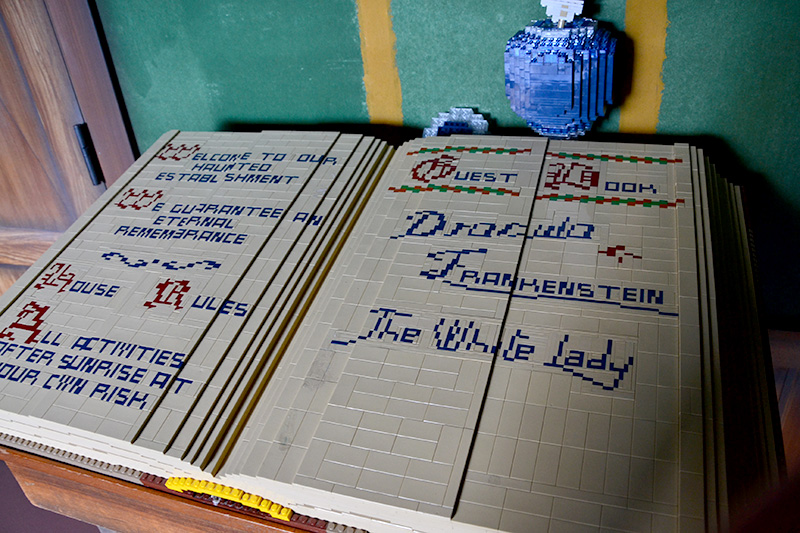 WELCOME TO OUR
HAUNTED
ESTABLISHMENT
WE GUARANTEE AN
ETERNAL
REMEMBRANCE
HOUSE RULES
ALL ACTIVITIES
AFTER SUNRISE AT
YOUR OWN RISK
GUEST BOOK
Dracula
FRANKENSTEIN
The White lady